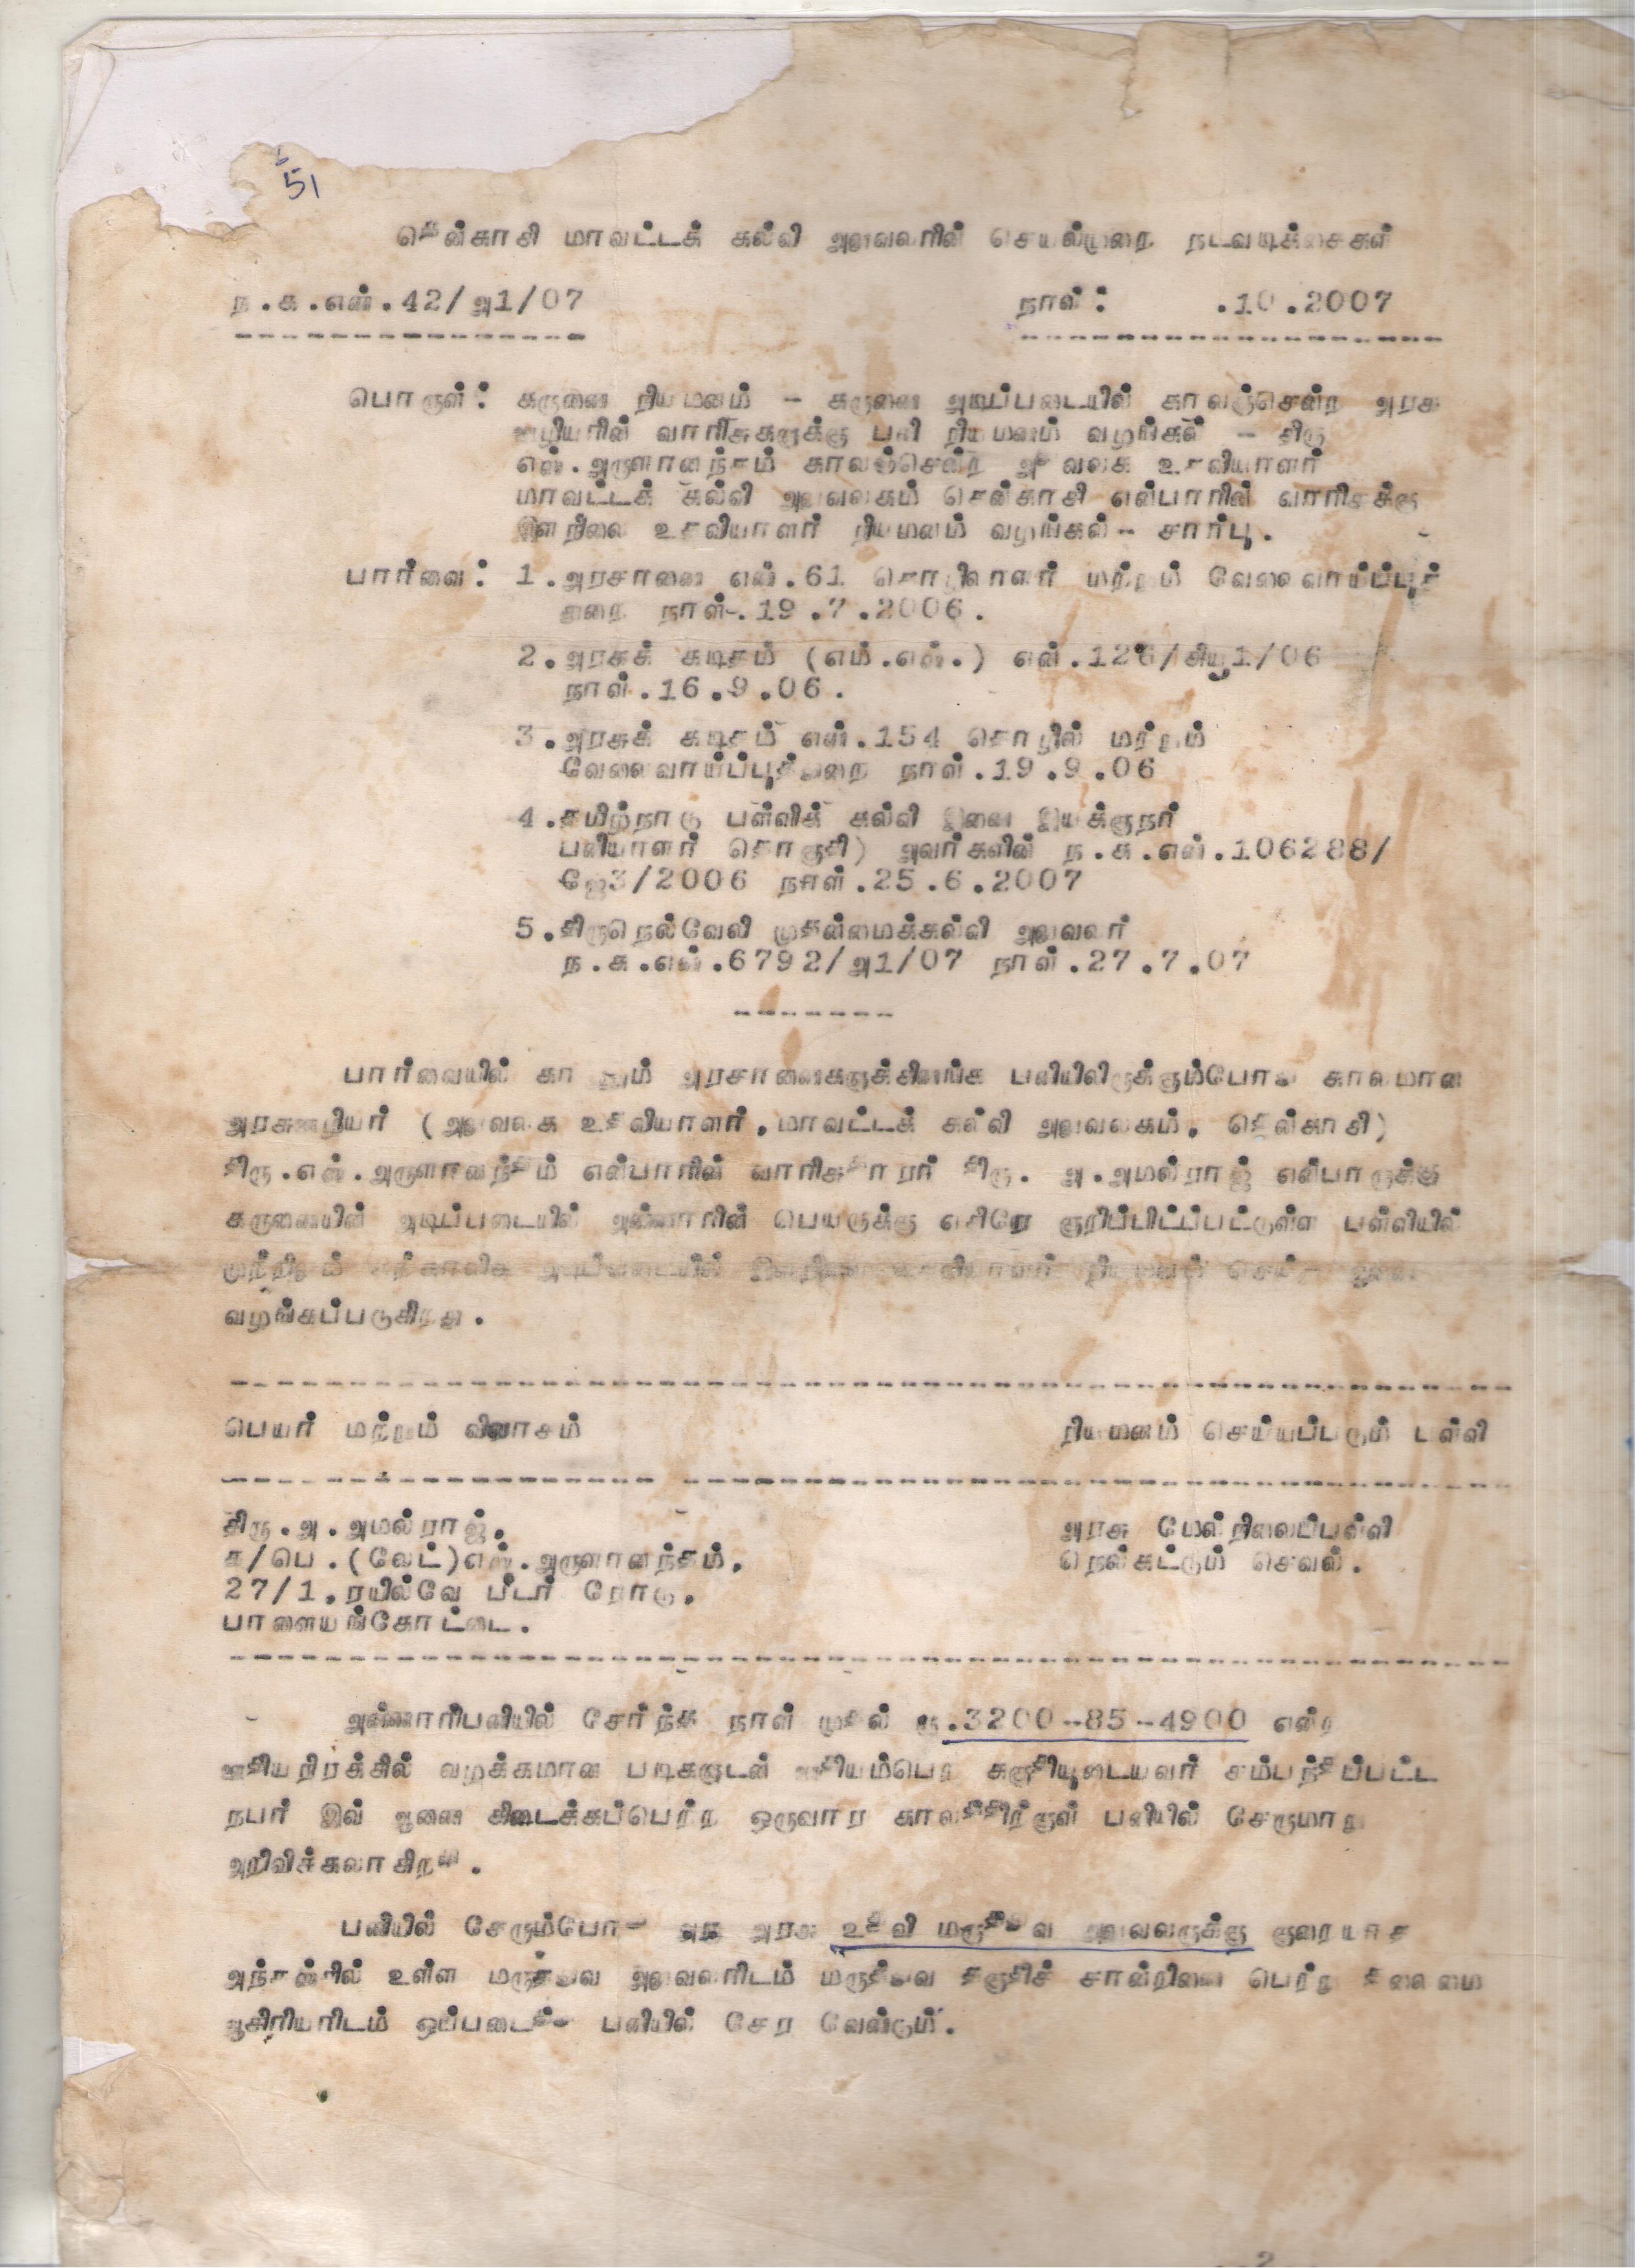 51
தென்காசி மாவட்டக் கல்வி அலுவலரின் செயல்முறை நடவடிக்கைகள்
ந.க.எண்.42/அ1/07 நாள்: .10.2007
பொருள்: கருணை நியமனம் - கருணை அடிப்படையில் காலஞ்சென்ற அரசு
ஊழியரின் வாரிசுகளுக்கு பணி நியமனம் வழங்கல் - திரு
எஸ்.அருளானந்தம் காலஞ்சென்ற அலுவலக உதவியாளர்
மாவட்டக் கல்வி அலுவலகம் தென்காசி என்பாரின் வாரிசுக்கு
இளநிலை உதவியாளர் நியமனம் வழங்கல்-- சார்பு.
பார்வை: 1.அரசாணை எண்.61 தொழிலாளர் மற்றும் வேலைவாய்ப்புத்
துறை நாள்-.19.7.2006.
2.அரசுக் கடிதம் (எம்.எஸ்.) எண்.126/கியூ1/06
நாள்.16.9.06.
3.அரசுக் கடிதம் எண்.154 தொழில் மற்றும்
வேலைவாய்ப்புத்துறை நாள்.19.9.06
4.தமிழ்நாடு பள்ளிக் கல்வி இணை இயக்குநர்
பணியாளர் தொகுதி) அவர்களின் ந.க.எண்.106288/
ஜே3/2006 நாள்.25.6.2007
5.திருநெல்வேலி முதன்மைக்கல்வி அலுவலர்
ந.க.எண்.6792/அ1/07 நாள்.27.7.07
-------
பார்வையில் காணும் அரசாணைகளுக்கிணங்க பணியிலிருக்கும்போது காலமான
அரசுஊழியர் (அலுவலக உதவியாளர்,மாவட்டக் கல்வி அலுவலகம், தென்காசி)
திரு.எஸ்.அருளானந்தம் என்பாரின் வாரிசுதாரர் திரு. அ.அமல்ராஜ் என்பாருக்கு
கருணையின் அடிப்படையில் அன்னாரின் பெயருக்கு எதிரே குறிப்பிட்ப்பட்டுள்ள பள்ளியில்
முற்றிலும் தற்காலிக அடிப்படையில் இளநிலை உதவியாளர் நியமனம் செய்து ஆணை
வழங்கப்படுகிறது.
பெயர் மற்றும் விலாசம் நியமனம் செய்யப்படும் பள்ளி
திரு.அ.அமல்ராஜ், அரசு மேல்நிலைப்பள்ளி
த/பெ.(லேட்)எஸ்.அருளானந்தம், நெல்கட்டும் செவல்.
27/1,ரயில்வே பீடர் ரோடு,
பாளையங்கோட்டை.
அன்னாரிபணியில் சேர்ந்த நாள் முதல் ரூ.3200-85-4900 என்ற
ஊதியநிரக்கில் வழக்கமான படிகளுடன் ஊதியம்பெற தகுதியுடையவர் சம்பந்தப்பட்ட
நபர் இவ் ஆணை கிடைக்கப்பெற்ற ஒருவார காலத்திற்குள் பணியில் சேருமாறு
அறிவிக்கலாகிறது.
பணியில் சேரும்போது அரசு உதவி மருத்துவ அலுவலருக்கு குறையாத
அந்தஸ்தில் உள்ள மருத்துவ அலுவலரிடம் மருத்துவ தகுதிச் சான்றினை பெற்று தலைமை
ஆசிரியரிடம் ஒப்படைத்து பணியில் சேர வேண்டும்.
2